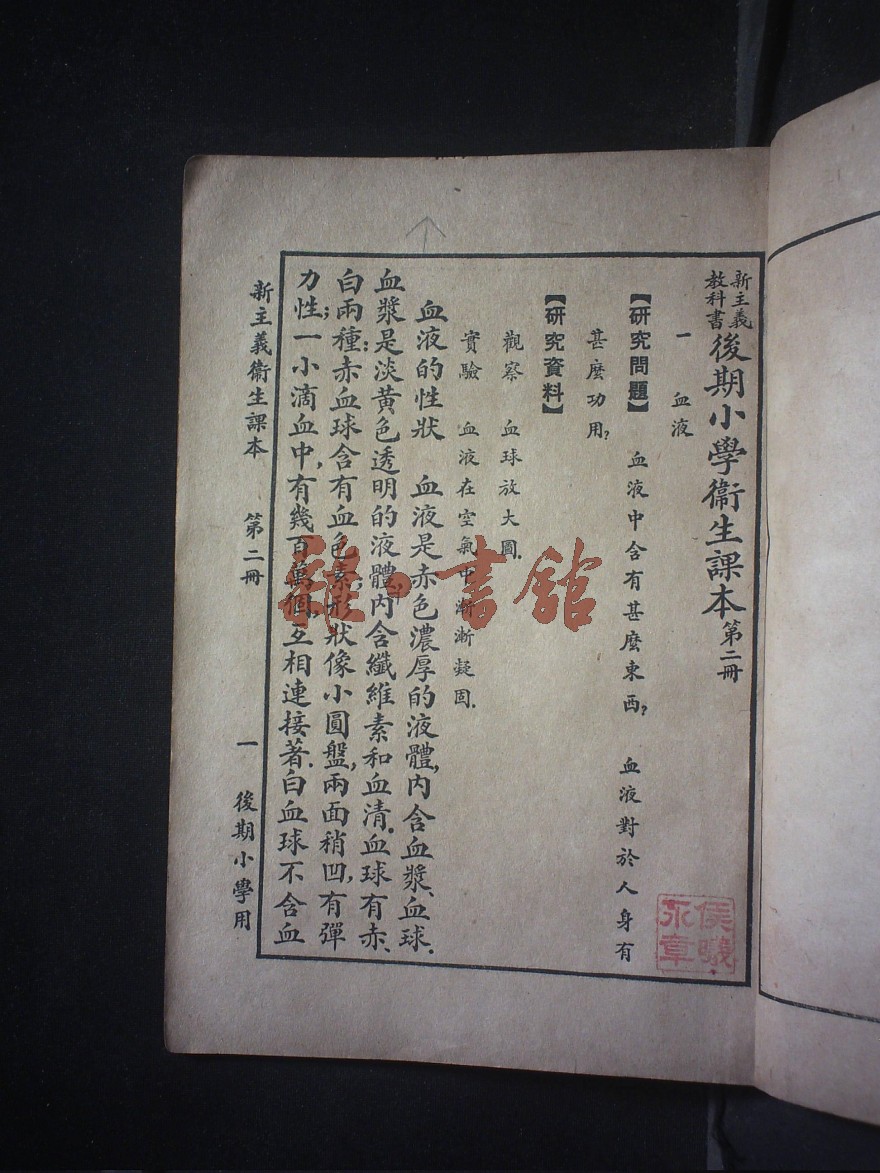 新主義教科書 後期小學衞生課本 第二冊
一 血液
【研究問題】 血液中含有甚麼東西? 血液對於人身有
甚麼功用?
【研究資料】
觀察 血球放大圖.
實驗 血液在空氣中漸漸凝固.
血液的性狀 血液是赤色濃厚的液體,內含血漿、血球.
血漿是淡黃色透明的液體,內含纖維素和血清.血球有赤、
白兩種:赤血球含有血色素;形狀像小圓盤,兩面稍凹,有彈
力性;一小滴血中,有幾百萬個,互相連接著.白血球不含血
新主義衞生課本 第二冊 一 後期小學用
侯曦永章
雜·書館